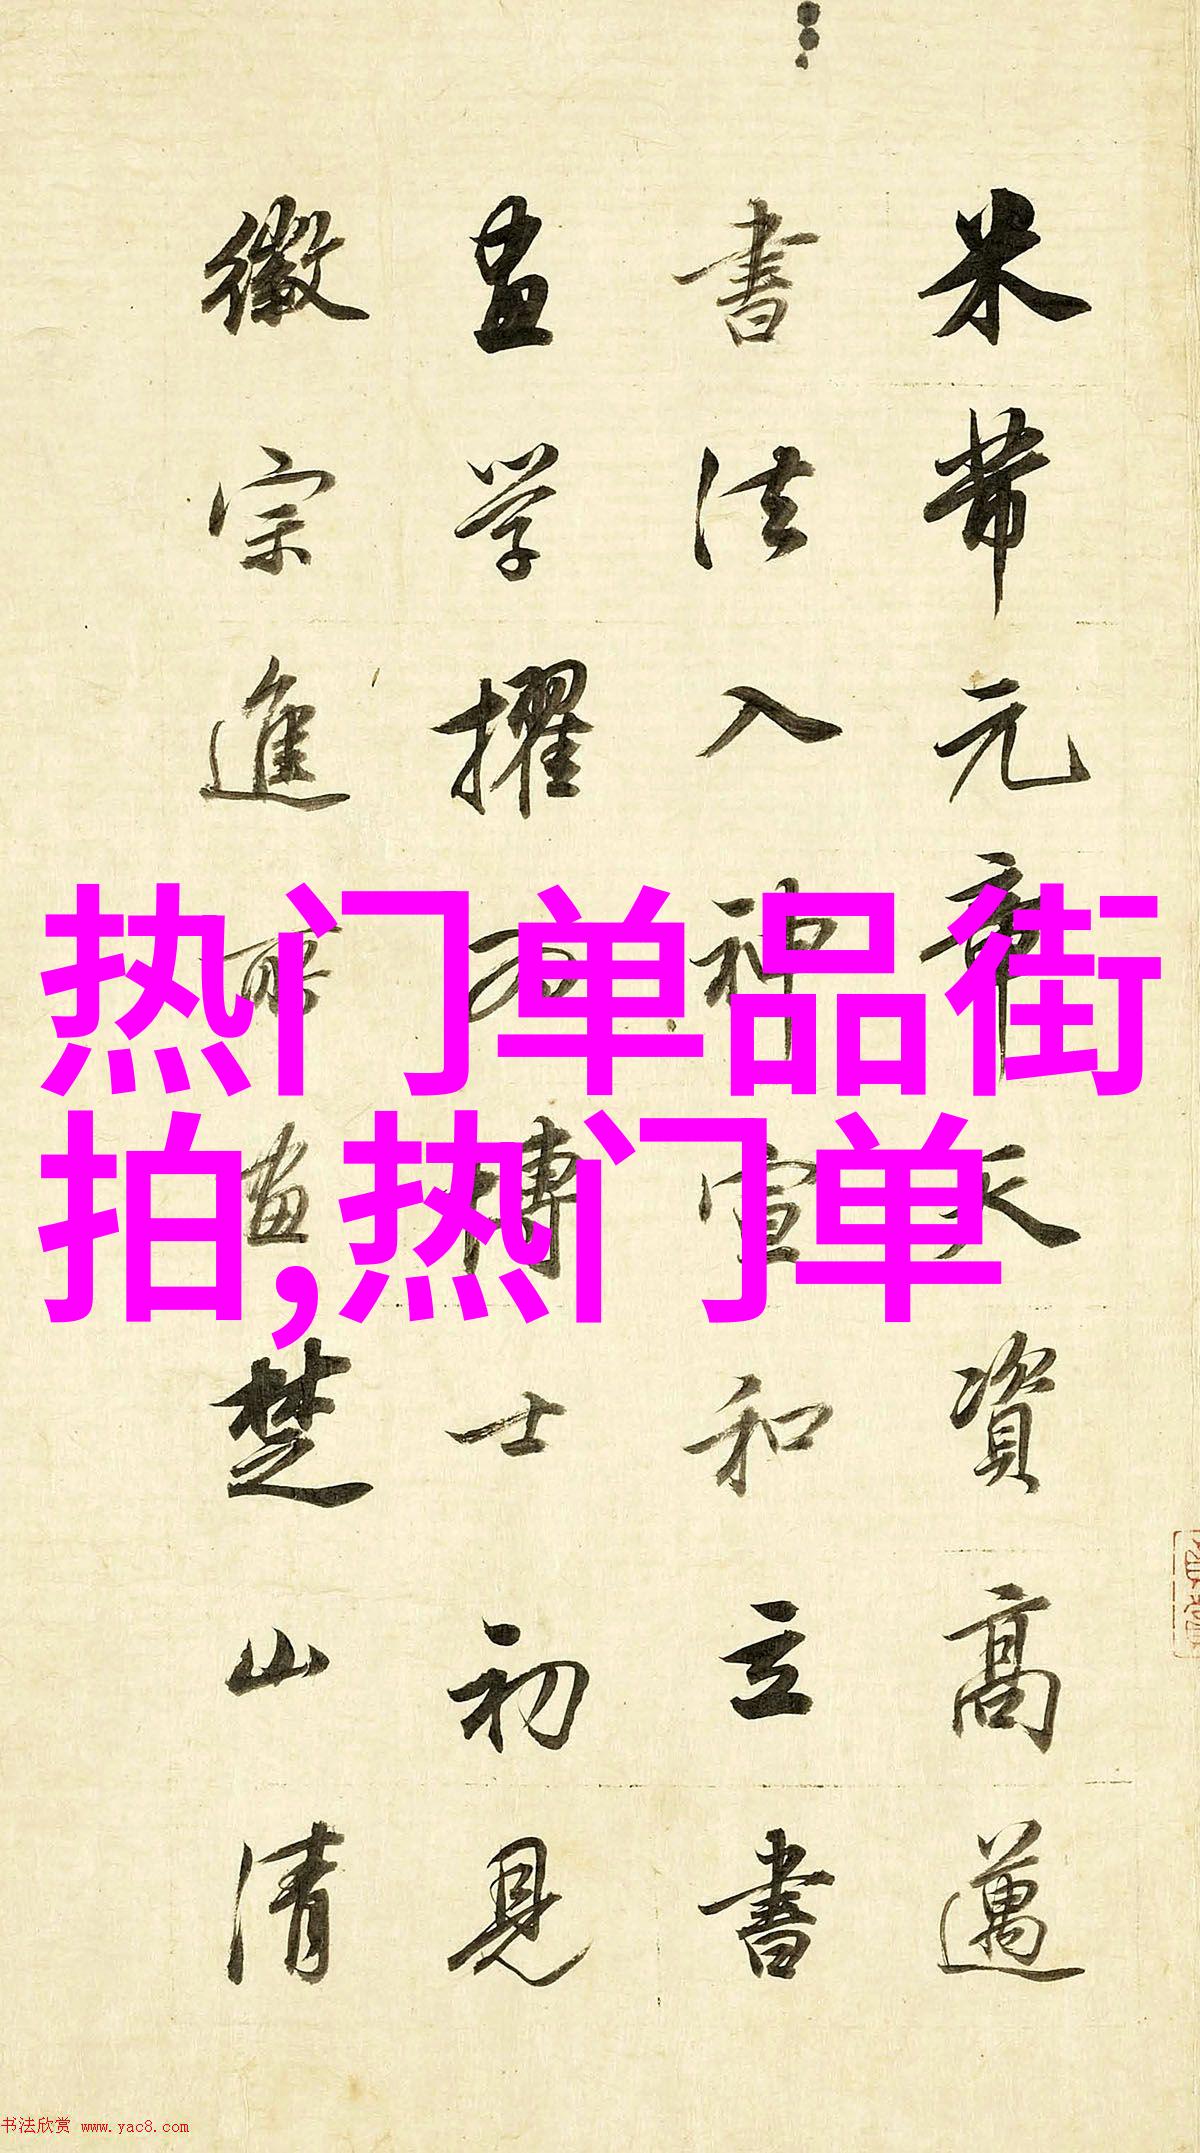 米芾元章天資高邁
書法入神宣和立書
畫學擢為博士初見
徽宗進所畫楚山清
热门单品街
拍,热门单
书法欣赏 www.yac8.com